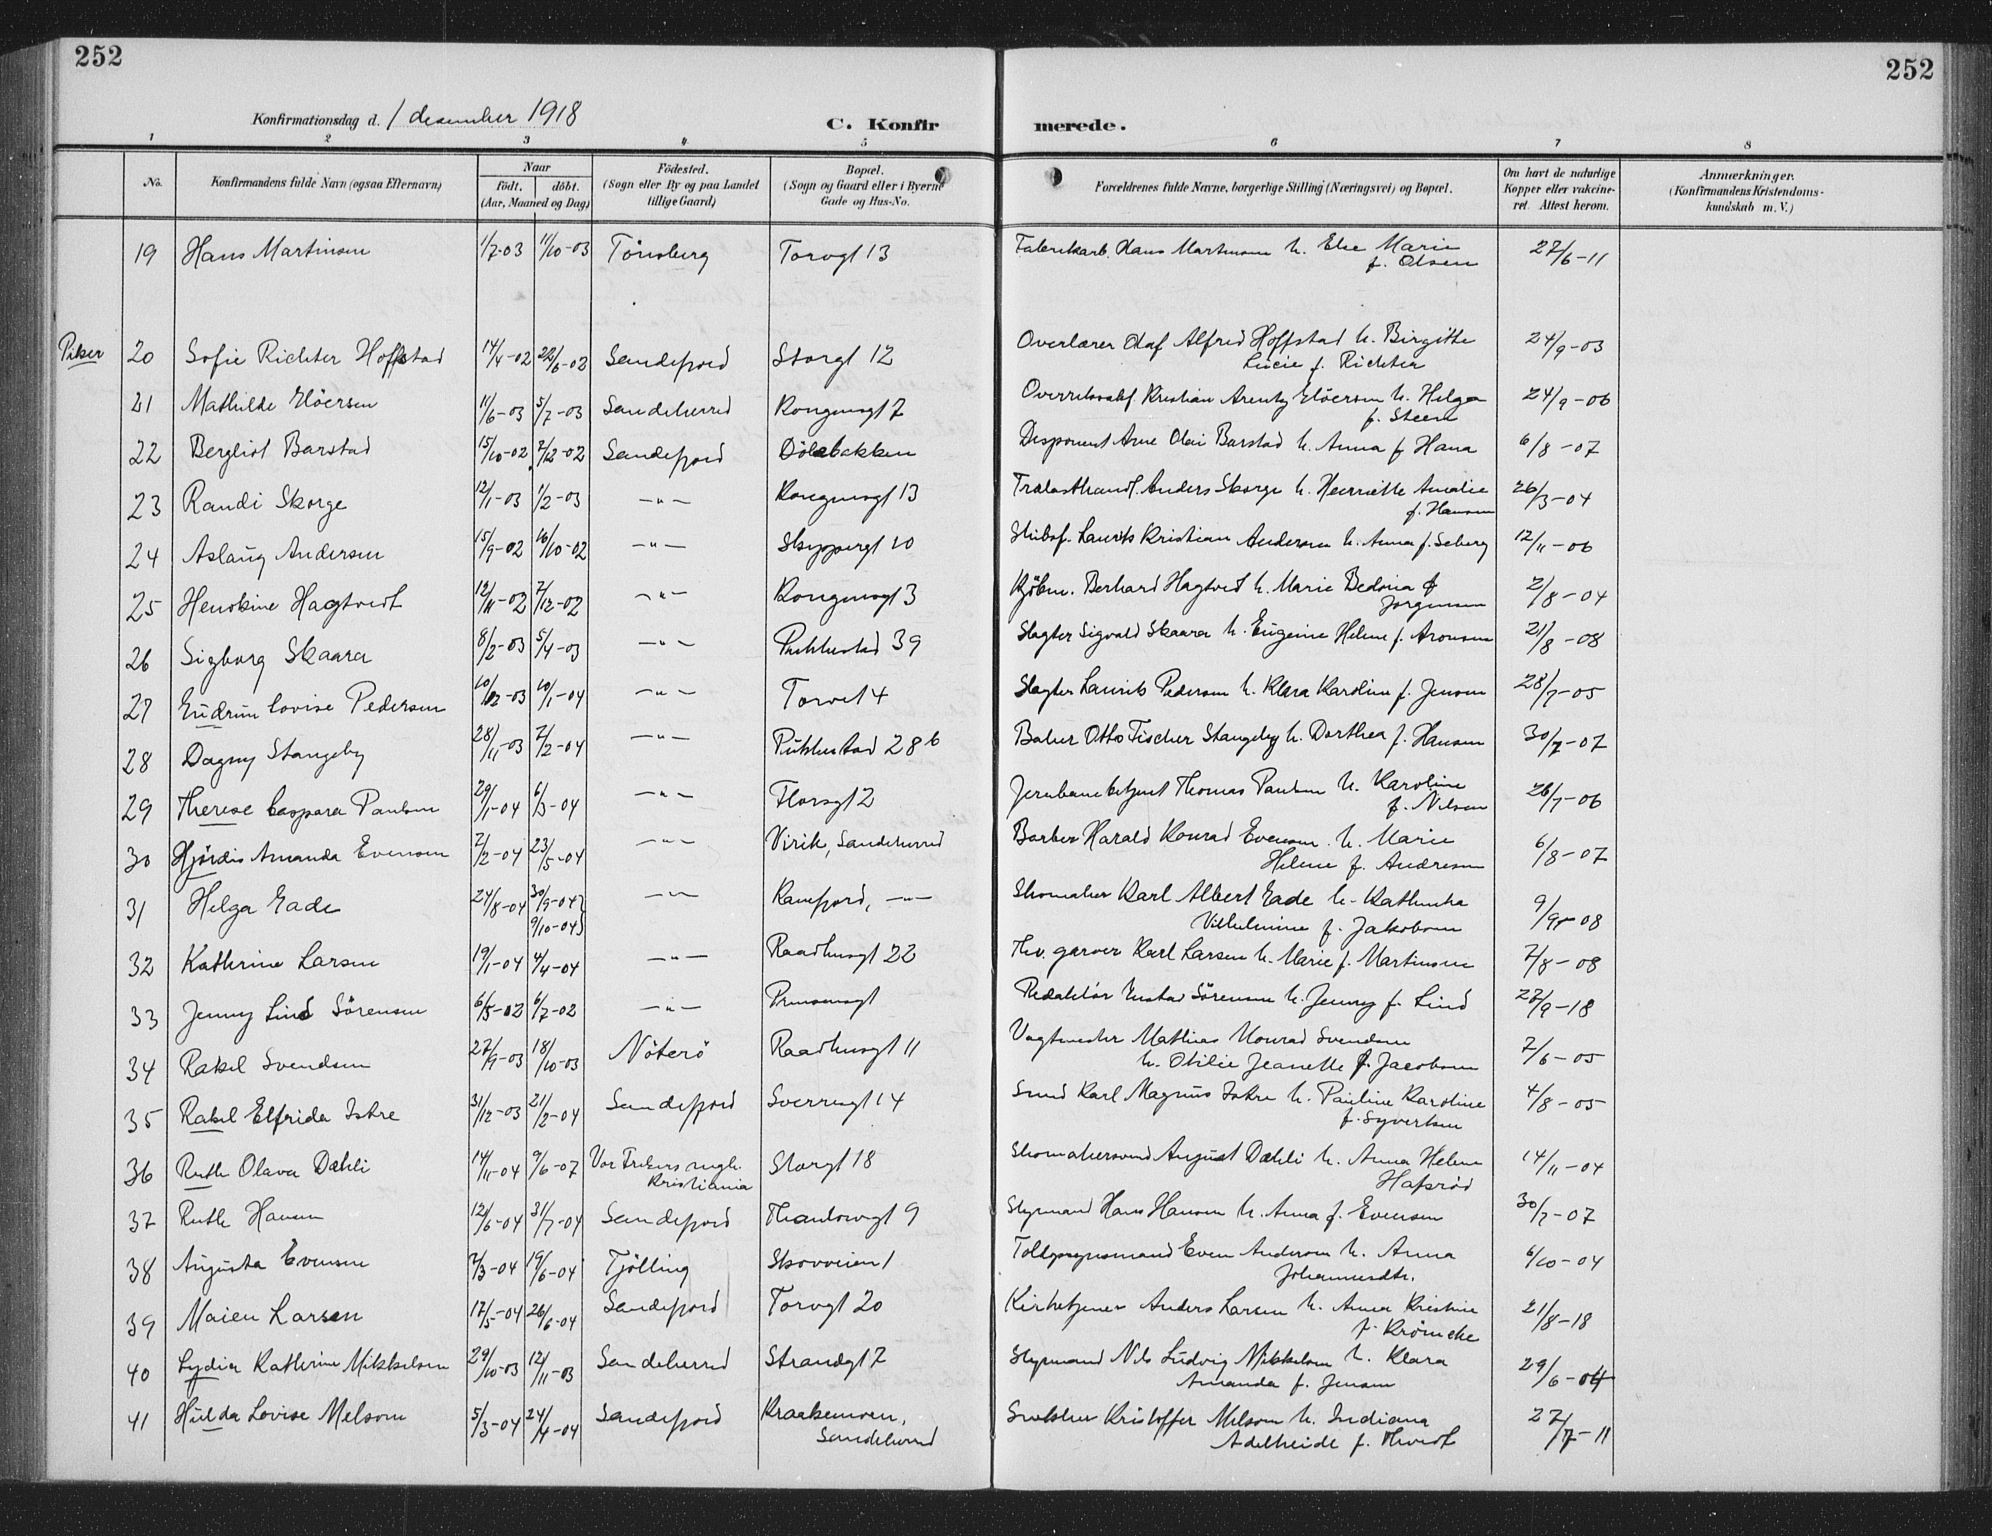 252
252
Konfirmationsdag d. 1 desember 1918
C. Konfirmerede.
1 2 3 4 5 6 7 8
No.
Konfirmandens fulde Navn (ogsaa Efternavn)
Naar
födt. döbt.
(Aar, Maaned og Dag)
Födested.
(Sogn eller By og paa Landet
tillige Gaard)
Bopæl.
(Sogn og Gaard eller i Byerne
Gade og Hus-No.
Forældrenes fulde Navne, borgerlige Stilling (Næringsvei) og Bopæl.
Om havt de naturlige
Kopper eller vakcine-
ret. Attest herom.
Anmærkninger.
(Konfirmandens Kristendoms-
kundskab m. V.)
19 Hans Martinsen 1/7-03 11/10-03 Tönsberg Torvgt 13 Fabrikarb. Hans Martinsen h. Else Marie f. Olsen 27/6-11
Piker
20 Sofie Richter Hoffstad 14/4-02 22/6-02 Sandefjord Storgt 12 Overlærer Olaf Alfred Hoffstad h. Birgitte Lucie f. Richter 24/9-03
21 Mathilde Elöersen 11/6-03 5/7-03 Sandeherred Kongensgt 7 Overretssakf. Kristian Arentz Elöersen h. Helga f. Steen 24/9-06
22 Bergliot Barstad 15/10-02 7/12-02 Sandefjord Dölebakken Disponent Arne Olai Barstad h. Anna f. Hana 6/8-07
23 Randi Skorge 12/1-03 1/2-03 -"- Kongensgt 13 Trælasthandl. Anders Skorge h. Henriette Amalie f. Hansen 26/3-04
24 Aslaug Andersen 15/9-02 16/10-02 -"- Skippergt 10 Skibsf. Laurits Kristian Andersen h. Anna f. Seberg 12/11-06
25 Henrikine Hagtvedt 12/11-02 7/12-02 -"- Kongensgt 3 Kjöbm. Berhard Hagtvedt h. Marie Bedoria f. Jörgensen 2/8-04
26 Sigborg Skaara 8/2-03 5/4-03 -"- Pukkestad 39 Slagter Sigvald Skaara h. Eugenie Helene f. Aronsen 21/8-08
27 Gudrun Lovise Pedersen 10/12-03 10/1-04 -"- Torvet 4 Slagter Laurits Pedersen h. Klara Karoline f. Jensen 28/7-05
28 Dagny Stangeby 28/11-03 7/2-04 -"- Pukkestad 28 b Baker Otto Fischer Stangeby h. Dorthea f. Hansen 30/7-07
29 Therese Caspara Paulsen 29/1-04 6/3-04 -"- Thorsgt 2 Jernbanebetjent Thomas Paulsen h. Karoline f. Nilsen 26/7-06
30 Hjördis Amanda Evensen 7/2-04 23/5-04 -"- Virik, Sandeherred Barber Harald Konrad Evensen h. Marie Helene f. Andresen 6/8-07
31 Helga Gade 24/8-04 30/9-04 9/10-04 -"- Kamfjord, -"- Skomaker Karl Albert Gade h. Kathinka Vilhelmine f. Jakobsen 9/9-08
32 Kathrine Larsen 19/1-04 4/4-04 -"- Raadhusgt 22 Hv. garver Karl Larsen h. Marie f. Martinsen 7/8-08
33 Jenny Lind Sörensen 6/5-02 6/7-02 -"- Prinsensgt Redaktör Gustav Sörensen h. Jenny f. Lind 27/9-18
34 Rakel Svendsen 27/9-03 18/10-03 Nöterö Raadhusgt 11 Vagtmester Mathias Konrad Svendsen h. Otilie Jeanette f. Jacobsen 7/6-05
35 Rakel Elfrida Istre 31/12-03 21/2-04 Sandefjord Sverresgt 14 Smed Karl Magnus Istre h. Pauline Karoline f. Syvertsen 4/8-05
36 Ruth Olava Dahli 14/11-04 9/6-07 Vor Frelsers mgh. Kristiania Storgt 18 Skomakersvend August Dahli h. Anna Helene Hafsröd 14/11-04
37 Ruth Hansen 12/6-04 31/7-04 Sandefjord Thaulowsgt 9 Styrmand Hans Hansen h. Anna f. Evensen 30/7-07
38 Augusta Evensen 7/3-04 19/6-04 Tjölling Skovveien 1 Toldopsynsmand Even Andersen h. Anna Johannesdtr. 6/10-04
39 Maien Larsen 17/5-04 26/6-04 Sandefjord Torvgt 20 Kirketjener Anders Larsen h. Anna Kristine f. Krömcke 21/8-18
40 Lydia Kathrine Mikkelsen 29/10-03 12/11-03 Sandeherred Strandgt 7 Styrmand Nils Ludvig Mikkelsen h. Klara Amanda f. Jensen 29/6-04
41 Hulda Lovise Melsom 5/3-04 24/4-04 Sandefjord Kraakemoen, Sandeherred Snekker Kristoffer Melsom h. Indiana Adelheide f. Hvidt 27/7-11